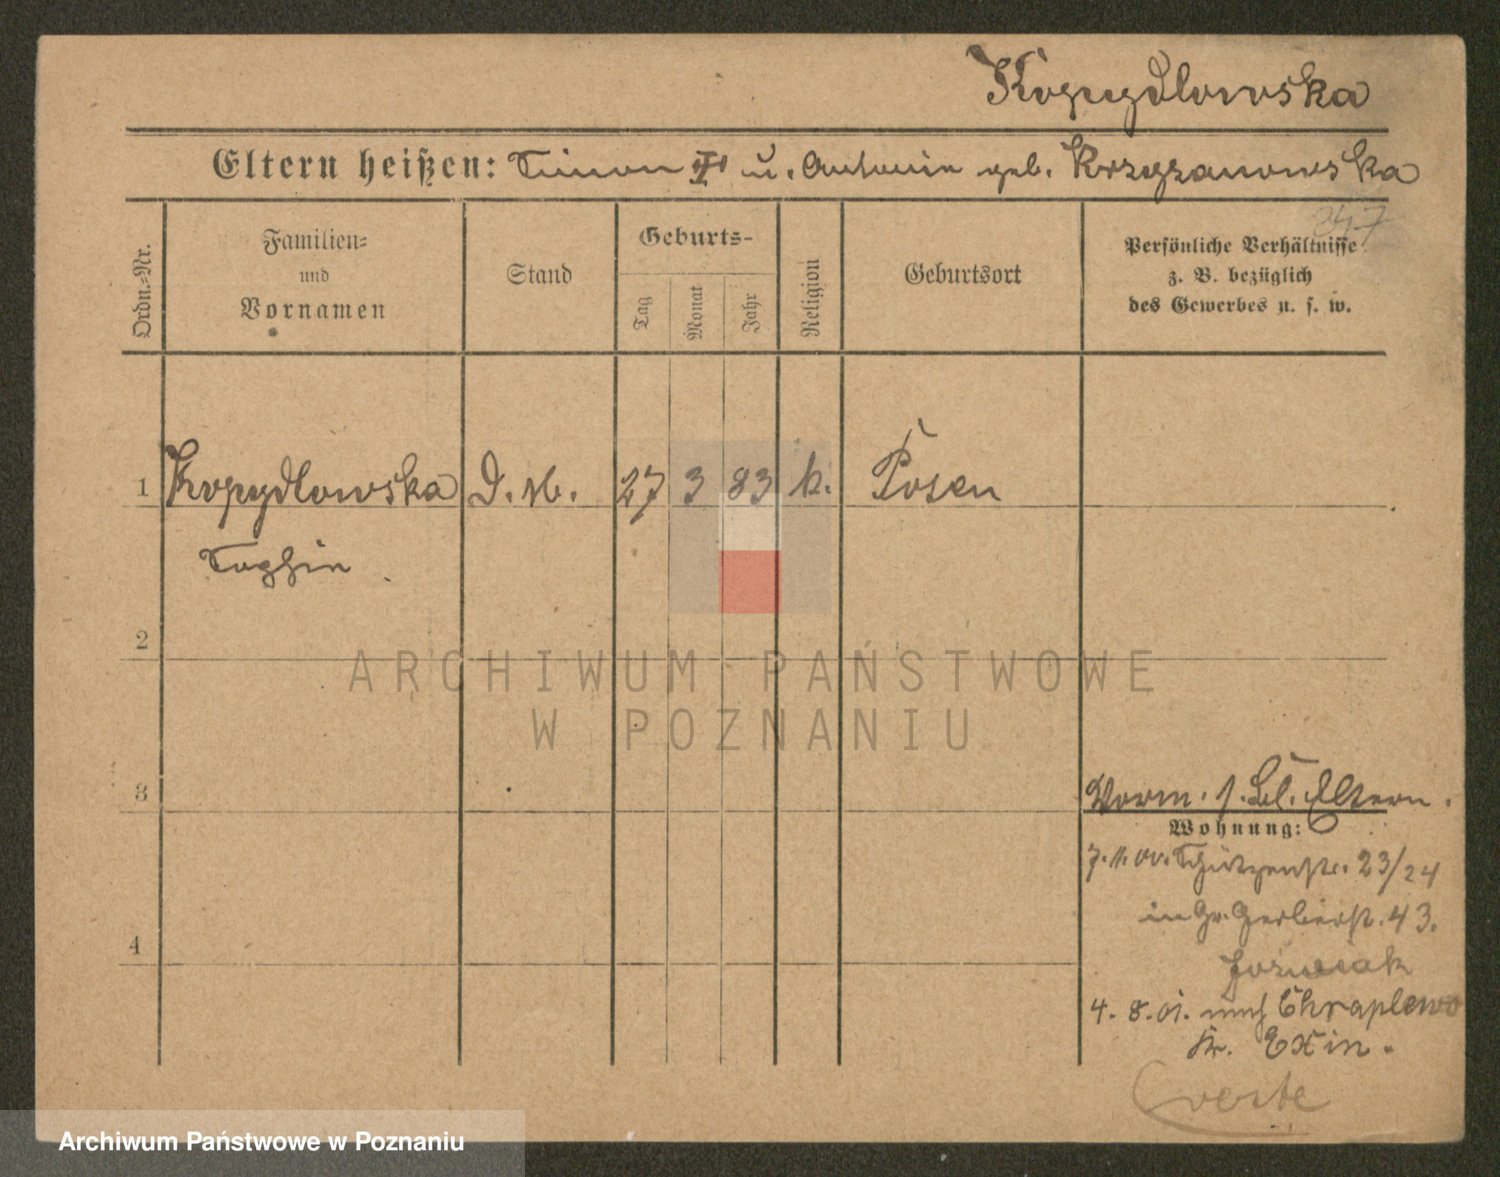 Kopydlowska
Eltern heißen: Simon u. Antonie geb. Krzyzanowska
Ordn.-Nr.
Familien-
und
Vornamen
Stand
Geburts-
Tag
Monat
Jahr
Religion
Geburtsort
Persönliche Verhältnisse
z. B. bezüglich
des Gewerbes u. s. w.
1 Kopydlowska D. M. 27 3 83 k. Posen
Sophie
2
3
4
Vorm. s. Bl. Eltern.
Wohnung:
7.11.00. Schützenstr. 23/24
in Gr. Gerberstr. 43.
Jozwiak
4.8.01. nach Chraplewo
Kr. Exin.
ARCHIWUM PAŃSTWOWE
W POZNANIU
Archiwum Państwowe w Poznaniu